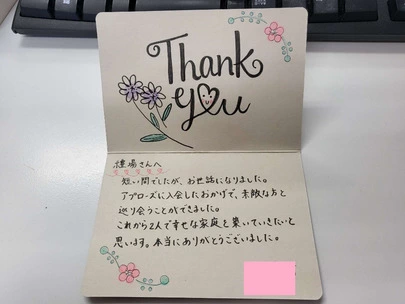 Thank
you
樋場さんへ
短い間でしたが、お世話になりました。
アプローズに入会したおかげで、素敵な方と
巡り会うことができました。
これから2人で幸せな家庭を築いていきたいと
思います。本当にありがとうございました。